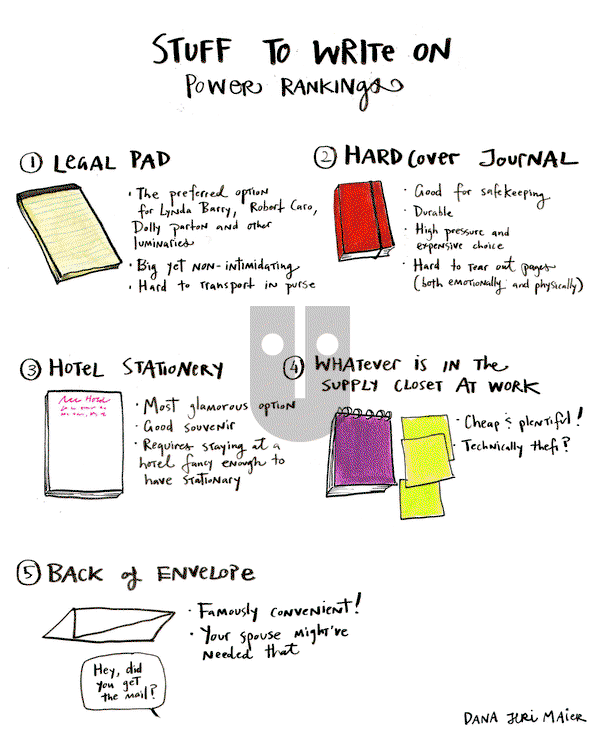 STUFF TO WRITE ON
POWER RANKINGS
1 LEGAL PAD
· The preferred option
for Lynda Barry, Robert Caro,
Dolly Parton and other
luminaries
· Big yet non-intimidating
· Hard to transport in purse
2 HARDCOVER JOURNAL
· Good for safekeeping
· Durable
· High pressure and
expensive choice
· Hard to tear out pages
(both emotionally and physically)
3 HOTEL STATIONERY
Hotel
· Most glamorous option
· Good souvenir
· Requires staying at a
hotel fancy enough to
have stationary
4 WHATEVER IS IN THE
SUPPLY CLOSET AT WORK
· Cheap & plentiful!
· Technically theft?
5 BACK of ENVELOPE
· Famously convenient!
· Your spouse might've
needed that
Hey, did
you get
the mail?
DANA JERI MAIER